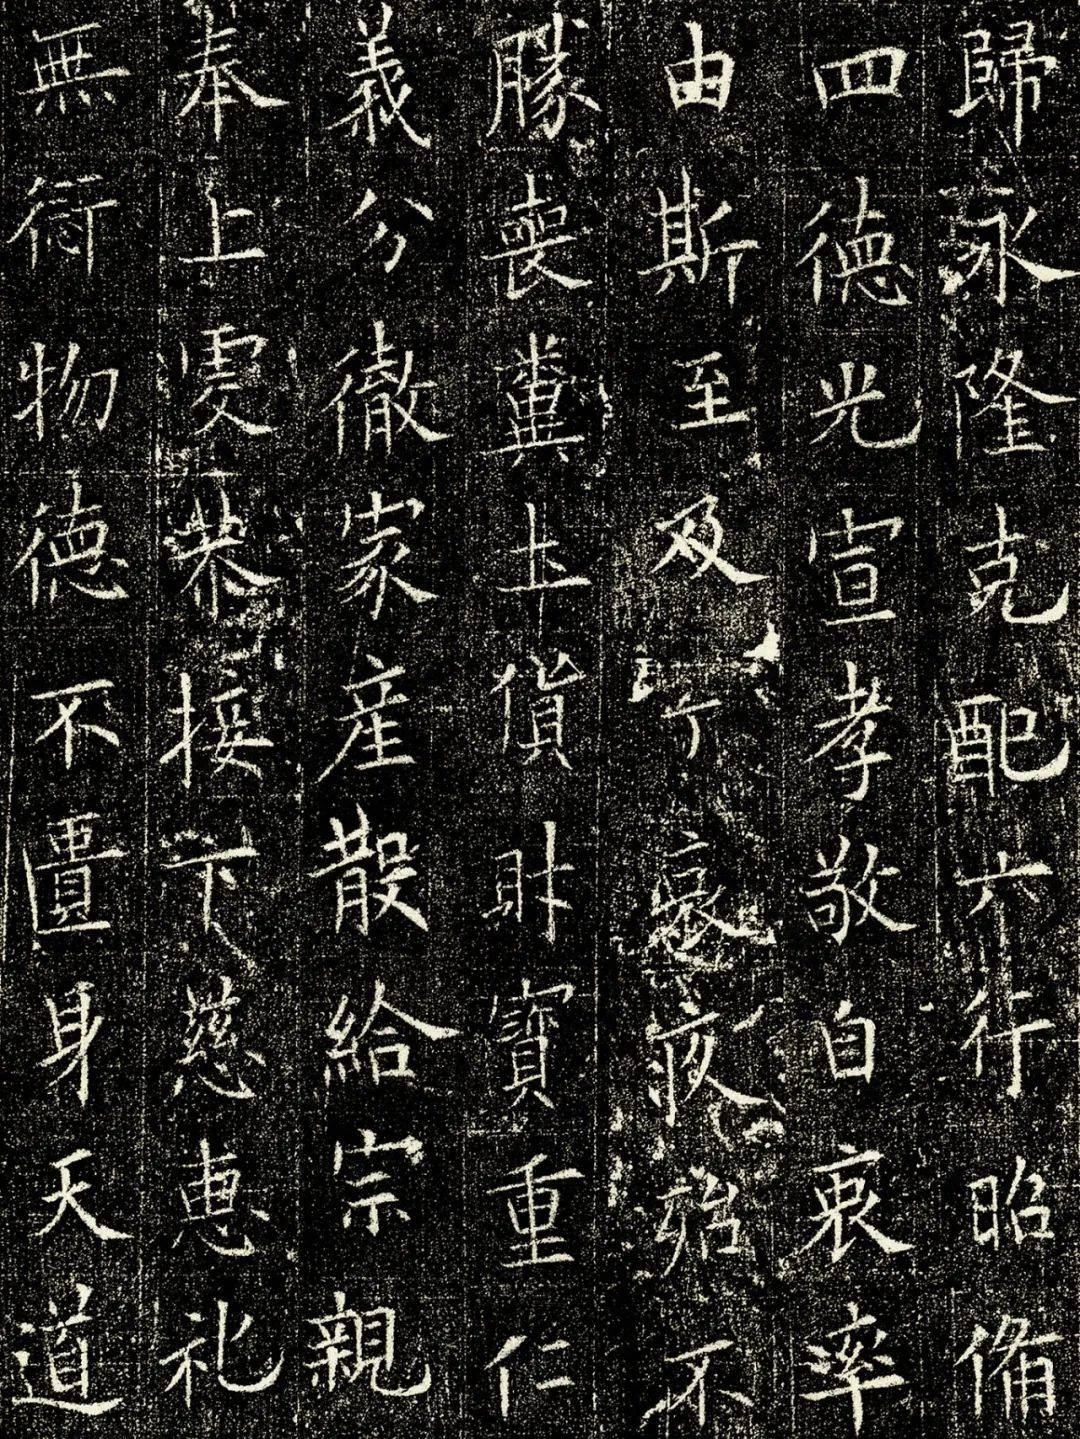 歸永隆克配六行昭脩
四德光宣孝敬自衷率
由斯至及丁哀疚殆不
勝喪糞土貨財寶重仁
義分徹家産散給宗親
奉上虔恭接下慈恵礼
無衍物德不遺身天道